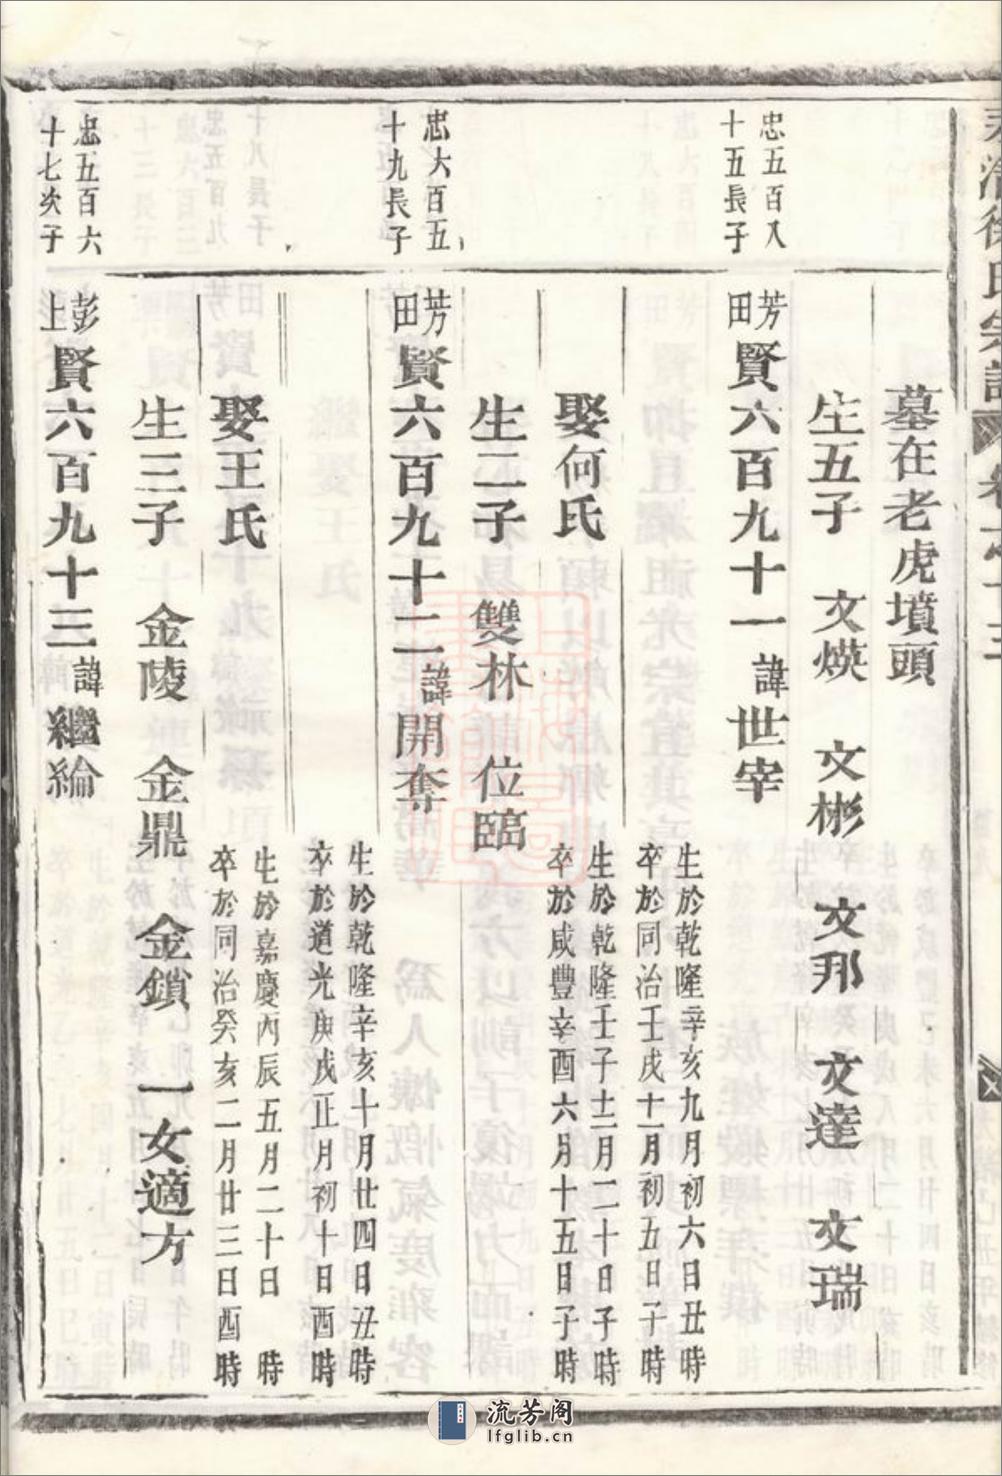 墓在老虎墳頭
生五子　文煐　文彬　文邦　文達　文瑞
忠五百八
十五長子
芳田賢六百九十一諱世宰
生於乾隆辛亥九月初六日丑時
卒於同治壬戌十一月初五日子時
娶何氏
生於乾隆壬子十二月二十日子時
卒於咸豐辛酉六月十五日子時
生二子　雙林　位臨
忠六百五
十九長子
芳田賢六百九十二諱開奪
生於乾隆辛亥十月廿四日丑時
卒於道光庚戌正月初十日酉時
娶王氏
生於嘉慶丙辰五月二十日　時
卒於同治癸亥二月廿三日酉時
生三子　金陵　金鼎　金鎖　一女適方
忠五百六
十七次子
彭上賢六百九十三諱繼綸
流芳阁
lfglib.cn